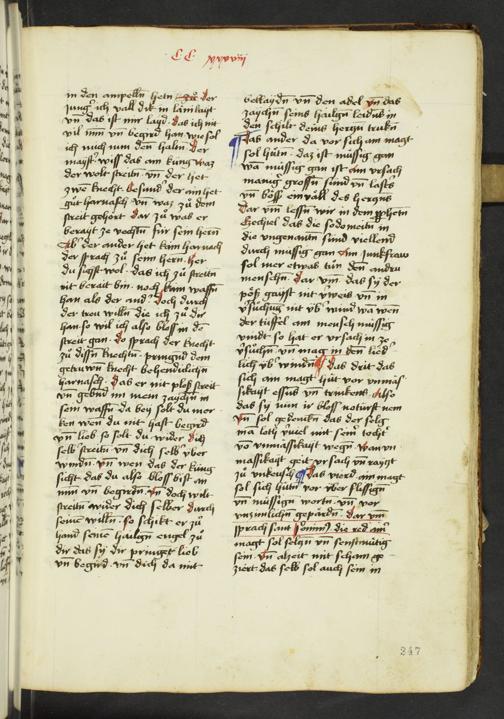 CC xxxviii
in den ampelln hetn zů der
Jung ich vall dik in lainkayt
vn̄ das ist mir layd das ich nit
vil inn vn̄ begird han wie sol
ich mich nun den halten der
mayst wiss das ain kung waz
der wolt streitn vn̄ der het
zwe knecht besund der ain het
gůt harnasch vn̄ waz zů dem
streit gehort dar zů was er
berayt ze vechtn für sein hern
ab der ander het kain harnach
der sprach zů seim hern her
du sigst wol das ich zů streitn
nit berait bin noch kain waffn
han als der and doch durch
der trew willn die ich zů dir
han so wil ich also bloss in dē
streit gan do sprach der knecht
zů dissn knechtn pringnd dem
getruwn knecht behendiclichn
harnasch das er nit ploß streit
vn̄ gebnd im mein zaychn in
sein waffn da bey solt du mer
ken wen du nit hast begird
vn̄ lieb so solt du wider dich
selb streitn vn̄ dich selb vber
windn vn̄ wen das der küng
sicht das du also bloss bist an
inn vn̄ begirdn vn̄ doch wilt
streitn wider dich selber durch
seine willn so schikt er zů
hand seine hailign engel zů
dir das sÿ dir pringet lieb
vn̄ begird vn̄ dich da mit
beklaydn vn̄ den adel vn̄ das
zaychn seins hailign leidns in
den schilt deins herczn trukn
das ander da vor sich ain magt
sol hütn daz ist müssig gan
wā müssig gan ist ain vrsach
manig grossn sünd vn̄ lasts
vn̄ böss einvall des herczns
Dar vm̄ lessn wir in dem pphetn
Ezechiel das die sodomeitn in
die vngenantn sünd viellend
durch müssig gan ain junkfraw
sol mer etwas tün den andru
menschn Dar vm̄ das sÿ der
pöß gayst nit
versuchung nit vb wind wa wen
der tüffel ain mensch müssig
vindt so hat er vrsach in ze
versuchn vn̄ mag in den lied
lich vb windn das drit das
sich ain magt hüt vor vnmäs
sikayt essns vn̄ trinkens Also
das sÿ nim ir bloss noturft nem
vn̄ sol gedenkn das der selg
mā loth sünt mit sein tocht
vō vnmässikayt wegn wan vn
massikayt geit vrsach vn̄ rayczt
zů vnkeusch das vierd ain magt
sol sich hütn vor vber flissign
vn̄ müssign wortn vn̄ vor
vnzimlichn gepärdn dar vm̄
sprach sant die red ain
magt sol selczn vn̄ senftmütig
sein vn̄ alzeit mit scham ge
ziert das selb sol auch sein in
247